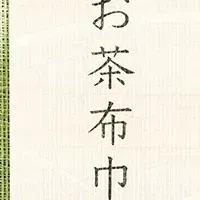 お茶布巾